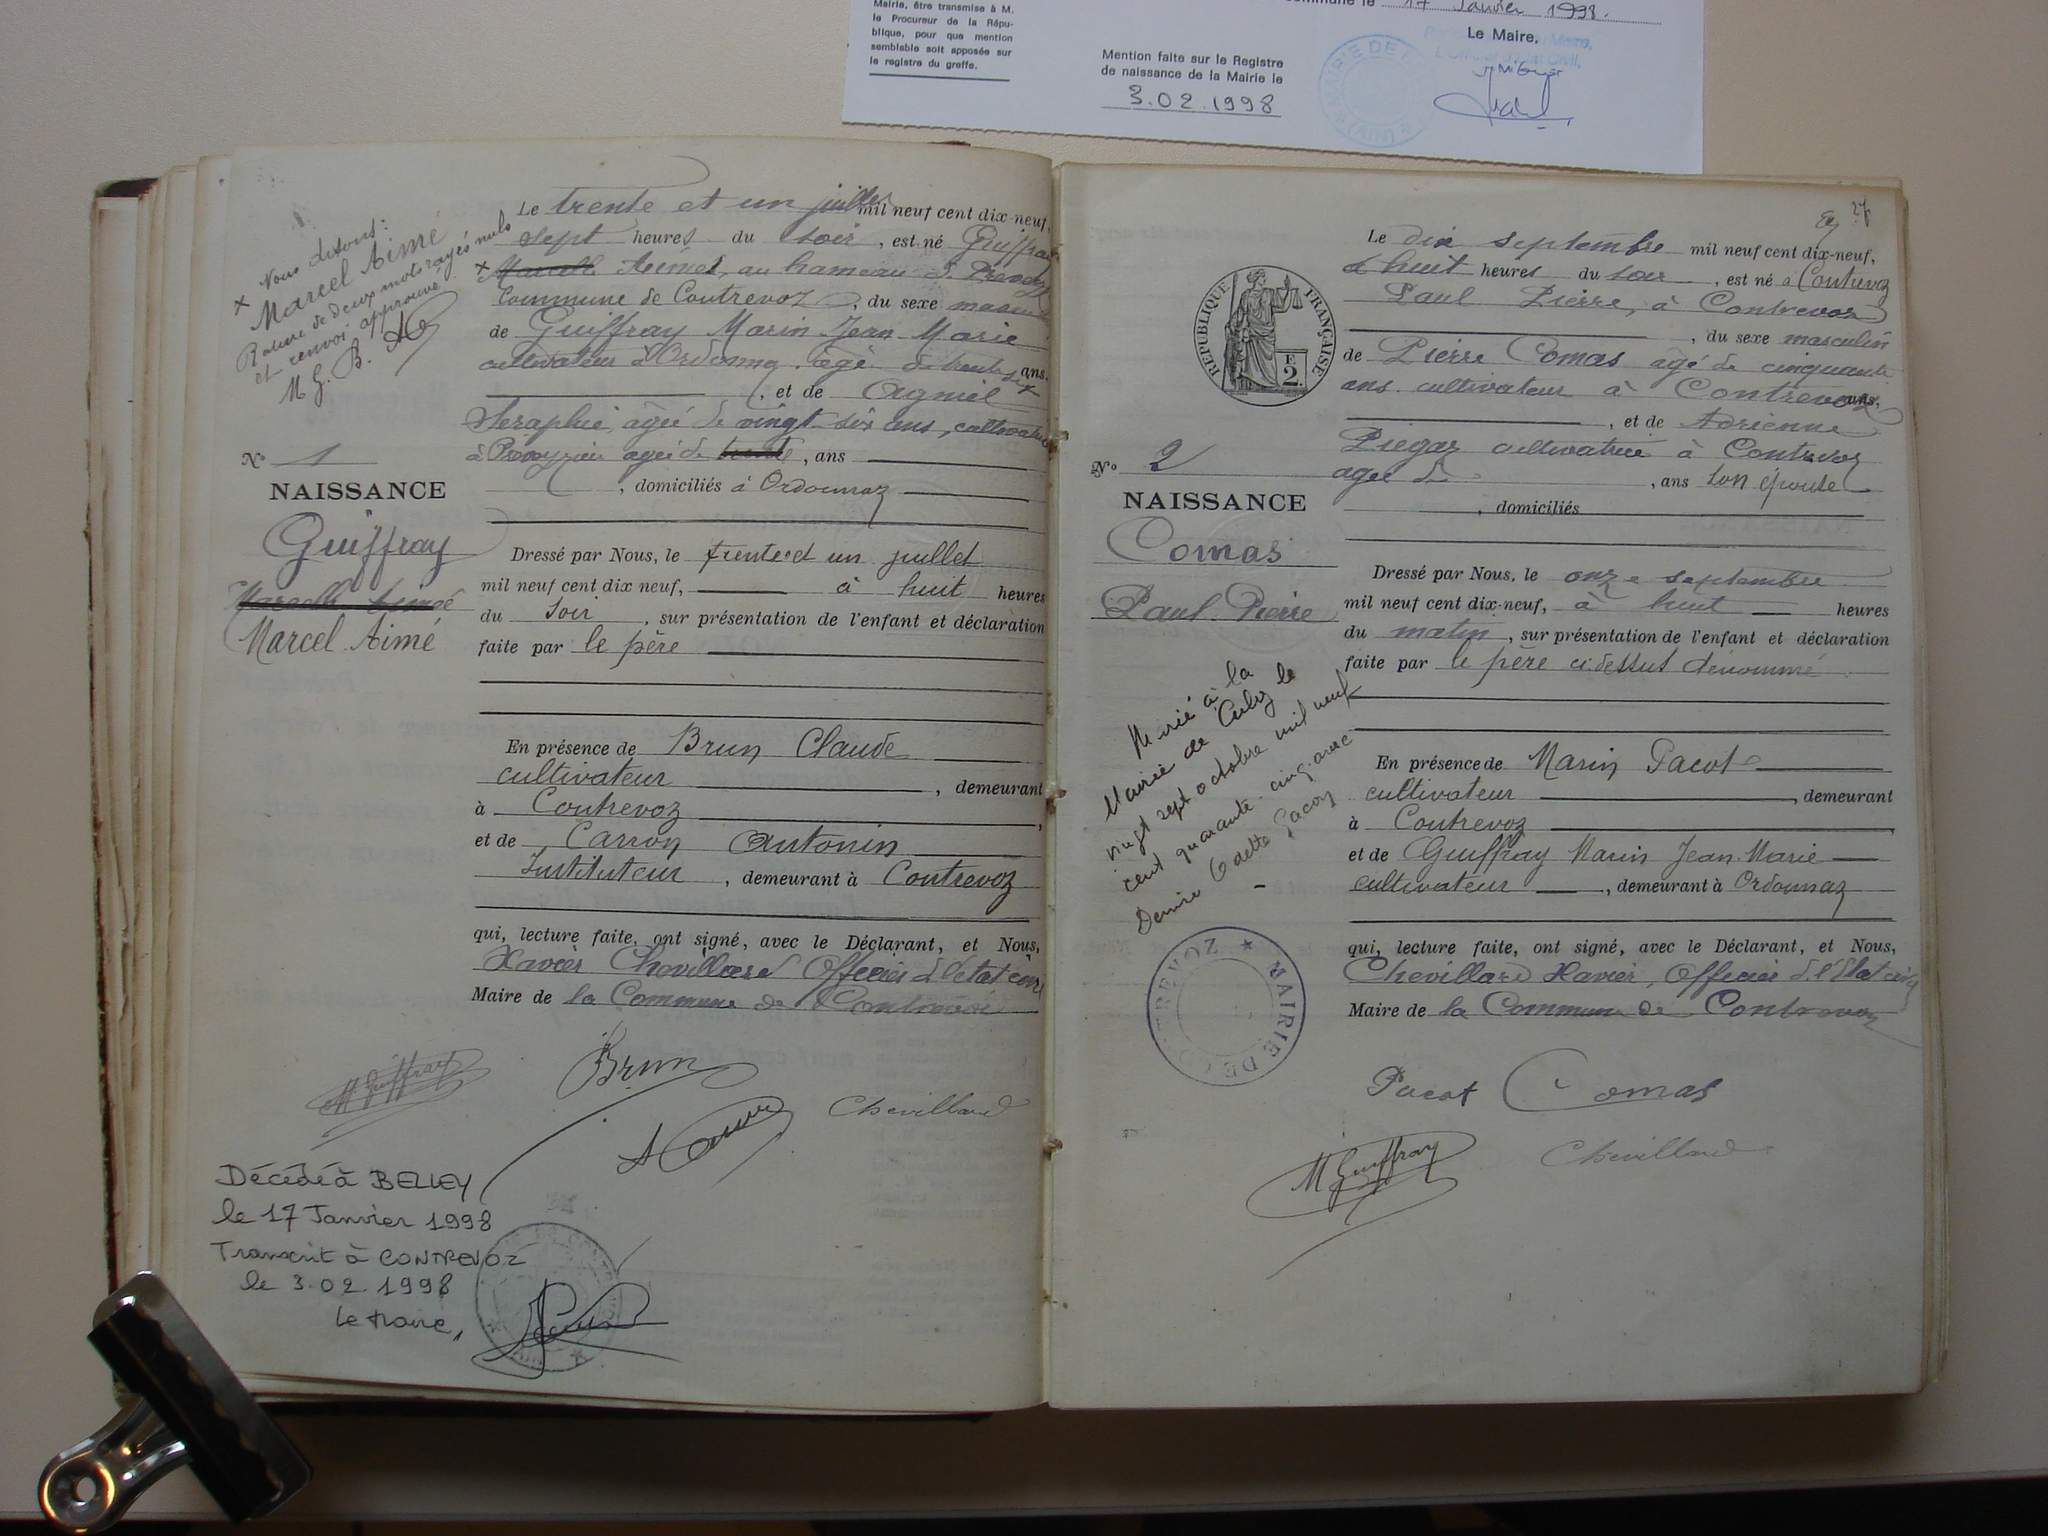 Mairie, être transmise à M.
le Procureur de la Répu-
blique, pour que mention
semblable soit apposée sur
le registre du greffe.
Mention faite sur le Registre
de naissance de la Mairie le
3.02.1998
commune le 17 Janvier 1998.
Le Maire,
x Nous disons:
Marcel Aimé
Rature de deux mots rayés nuls
et renvoi approuvé
M G. B. AC
Le trente et un juillet mil neuf cent dix-neuf,
sept heures du soir, est né Guiffray
x Marcelle Aimé, au hameau de
Commune de Contrevoz, du sexe masculin
de Guiffray Marin Jean Marie
cultivateur à Ordonnaz agé de trente six ans,
, et de Agniel
Seraphie, âgée de vingt-six ans, cultivatrice
à agée de trente, ans
, domiciliés à Ordonnaz
No 1
NAISSANCE
Guiffray
Marcelle Aimée
Marcel Aimé
Dressé par Nous, le trente et un juillet
mil neuf cent dix neuf, à huit heures
du soir, sur présentation de l'enfant et déclaration
faite par le père
En présence de Brun Claude
cultivateur, demeurant
à Contrevoz,
et de Carron Antonin
Instituteur, demeurant à Contrevoz
qui, lecture faite, ont signé, avec le Déclarant, et Nous,
Xavier Chevillard Officier d l'état civil
Maire de la Commune de Contrevoz
M Guiffray Brun
A Carron Chevillard
Décédé à BELLEY
le 17 Janvier 1998
Transcrit à CONTREVOZ
le 3.02.1998
Le Maire,
27
Le dix septembre mil neuf cent dix-neuf,
à huit heures du soir, est né à Contrevoz
Paul Pierre, à Contrevoz
, du sexe masculin
de Pierre Comas agé de cinquante
ans cultivateur à Contrevoz ans,
, et de Adrienne
Piegaz cultivatrice à Contrevoz
agée de , ans son épouse
, domiciliés
RÉPUBLIQUE FRANÇAISE
E
2.
No 2
NAISSANCE
Comas
Paul Pierre
Dressé par Nous, le onze septembre
mil neuf cent dix-neuf, à huit heures
du matin, sur présentation de l'enfant et déclaration
faite par le père ci-dessus dénommé
Marié à la
Mairie de Culoz le
vingt sept octobre mil neuf
cent quarante-cinq avec
Denise Odette
En présence de Marin Pacot
cultivateur, demeurant
à Contrevoz
et de Guiffray Marin Jean Marie
cultivateur, demeurant à Ordonnaz
qui, lecture faite, ont signé, avec le Déclarant, et Nous,
Chevillard Xavier, Officier d l'Etat civil
Maire de la Commune de Contrevoz
MAIRIE DE CONTREVOZ
Pacot Comas
M Guiffray Chevillard